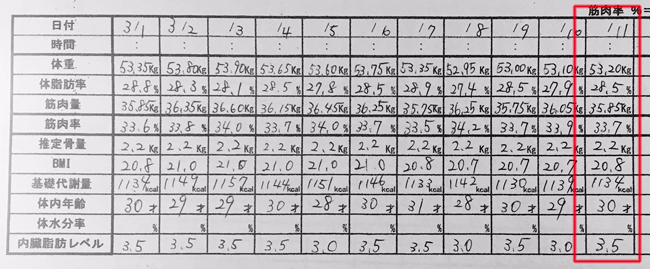 筋肉率 %=
日付 3/1 3/2 /3 /4 /5 /6 /7 /8 /9 /10 /11
時間 : : : : : : : : : : :
体重 53.35Kg 53.80Kg 53.90Kg 53.65Kg 53.60Kg 53.75Kg 53.35Kg 52.95Kg 53.00Kg 53.10Kg 53.20Kg
体脂肪率 28.8% 28.3% 28.1% 28.5% 27.8% 28.5% 28.9% 27.4% 28.5% 27.9% 28.5%
筋肉量 35.85Kg 36.35Kg 36.60Kg 36.15Kg 36.45Kg 36.25Kg 35.75Kg 36.25Kg 35.75Kg 36.05Kg 35.85Kg
筋肉率 33.6% 33.8% 34.0% 33.7% 34.0% 33.7% 33.5% 34.2% 33.7% 33.9% 33.7%
推定骨量 2.2Kg 2.2Kg 2.2Kg 2.2Kg 2.2Kg 2.2Kg 2.2Kg 2.2Kg 2.2Kg 2.2Kg 2.2Kg
BMI 20.8 21.0 21.0 21.0 21.0 21.0 20.8 20.7 20.7 20.7 20.8
基礎代謝量 1134kcal 1149kcal 1157kcal 1144kcal 1151kcal 1146kcal 1133kcal 1142kcal 1130kcal 1139kcal 1134kcal
体内年齢 30才 29才 29才 30才 28才 30才 31才 28才 30才 29才 30才
体水分率 % % % % % % % % % % %
内臓脂肪レベル 3.5 3.5 3.5 3.5 3.0 3.5 3.5 3.0 3.5 3.0 3.5